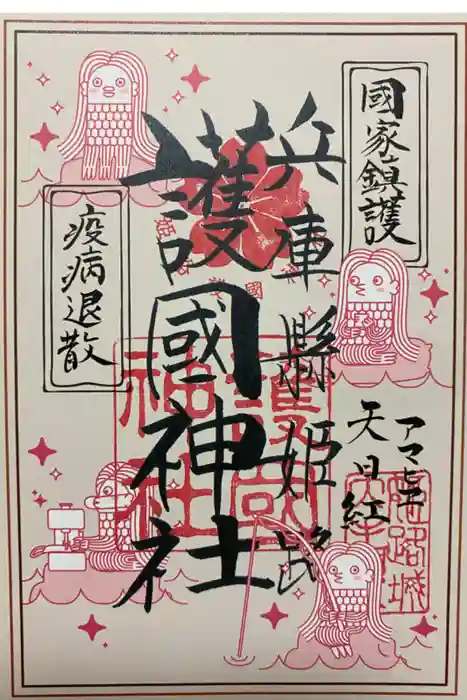 國家鎮護
兵庫縣姫路
護國神社
疫病退散
天日紅
護國
神社
姫路城